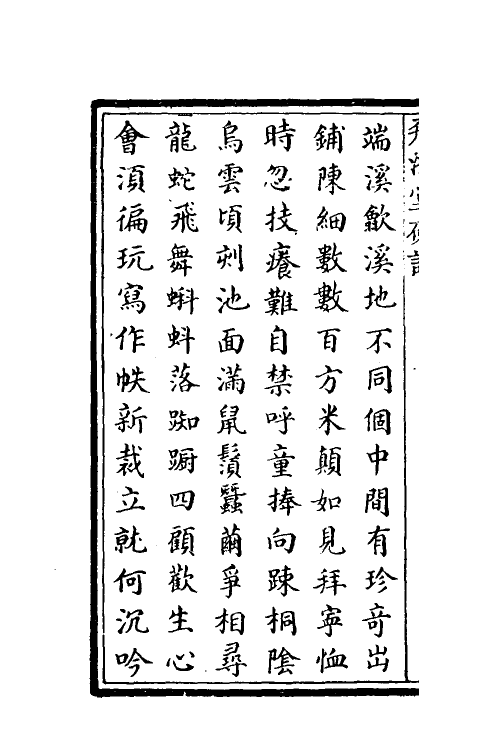 端溪歙溪地不同個中間有珍奇出
鋪陳細數數百方米顛如見拜寧恤
時忽技癢難自禁呼童捧向踈桐陰
烏雲頃刻池面滿鼠鬚蠶繭爭相尋
龍蛇飛舞蝌蚪落踟蹰四顧歡生心
會須徧玩寫作帙新裁立就何沉吟